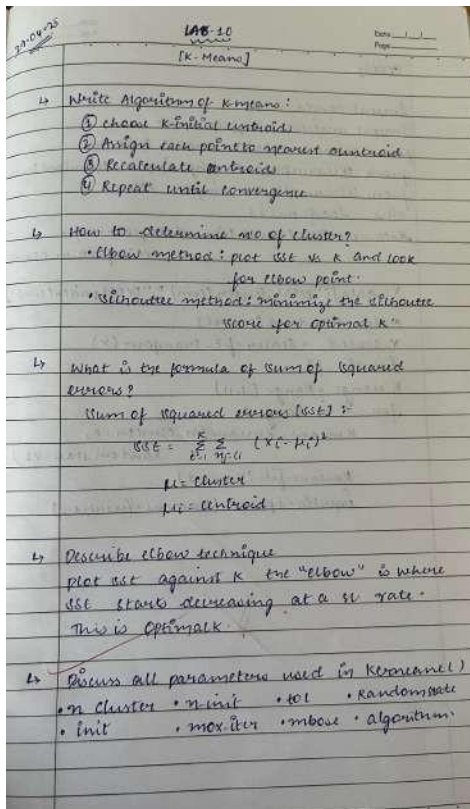 29-04-25
LAB-10
Date / /
Page
[K-Means]
↳ Write Algorithm of K-means:
① choose K-initial centroids
② Assign each point to nearest centroid
③ Recalculate centroids
④ Repeat until convergence
↳ How to determine no of cluster?
• Elbow method: plot sst vs K and look
for elbow point.
• Silhoutee method: minimize the silhoutee
score for optimal K
↳ What is the formula of sum of squared
errors?
Sum of squared errors [sst] :-
μ = cluster
μi = centroid
↳ Describe elbow technique
plot sst against K the "elbow" is where
sst starts decreasing at a sl rate.
This is optimal K.
↳ Discuss all parameters used in
• n cluster • n-init • tol • Random state
• init • max.iter • algorithm.